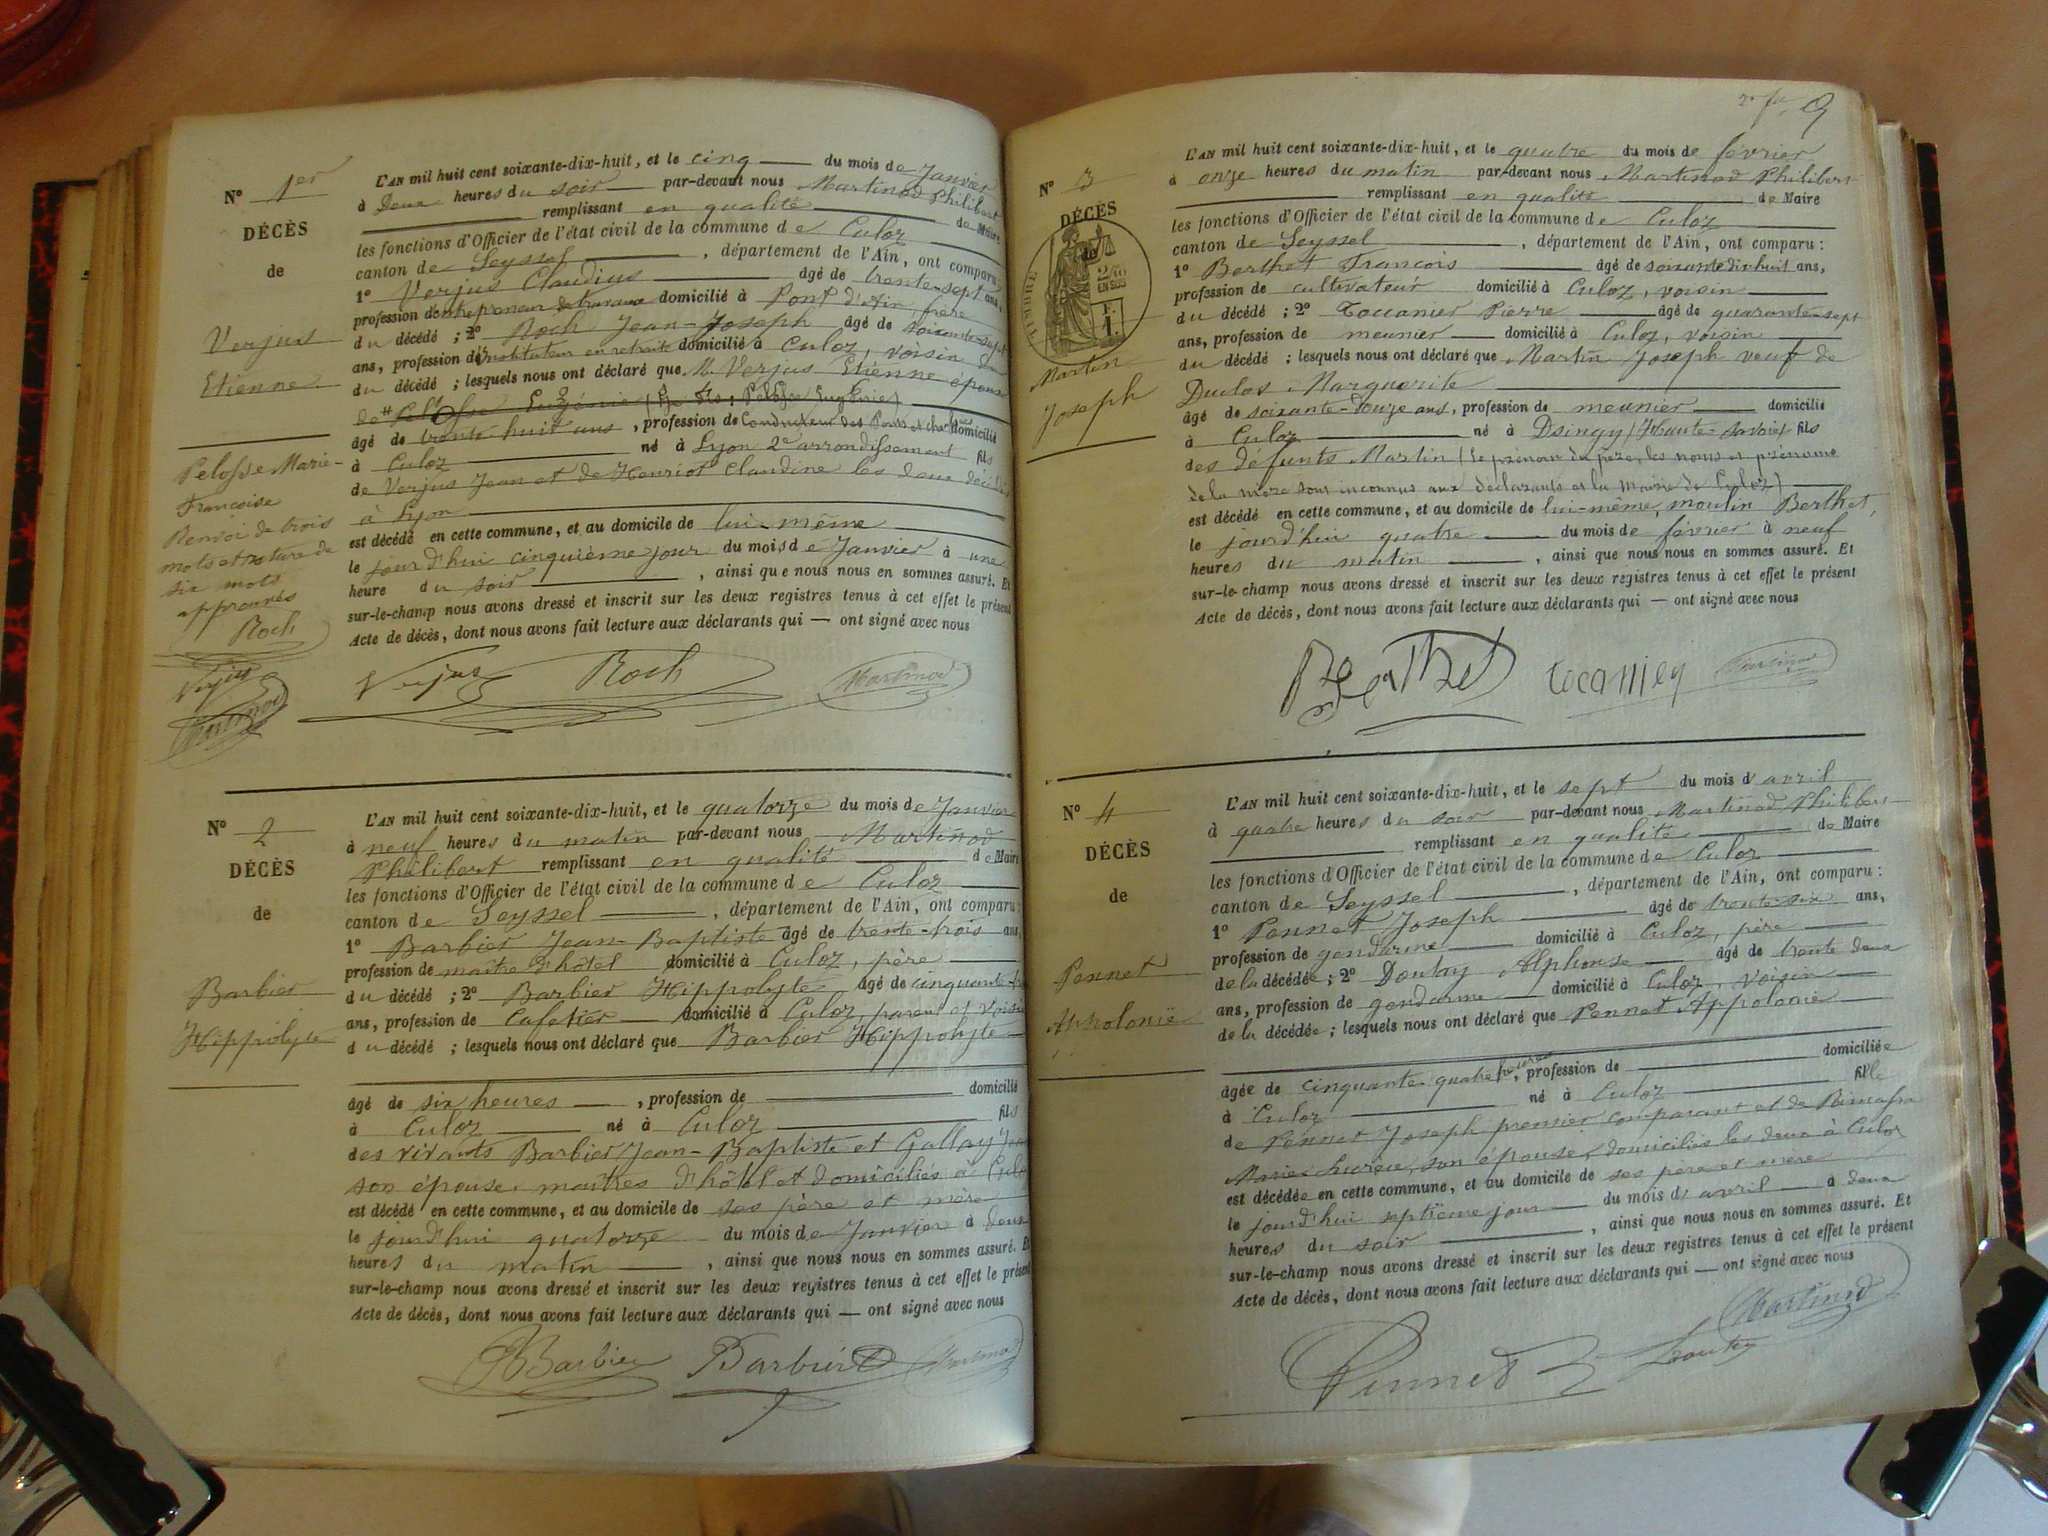 N° 1er
DÉCÈS
de
Verjus
Etienne
Pelosse Marie-
Françoise
Renvoi de trois
mots et rature de
six mots
approuvés
Roch
Verjus
Martinod
L'AN mil huit cent soixante-dix-huit, et le cinq du mois de Janvier
à Deux heures du soir par-devant nous Martinod Philibert
remplissant en qualité de Maire
les fonctions d'Officier de l'état civil de la commune de Culoz
canton de Seyssel, département de l'Ain, ont comparu:
1° Verjus Claudius âgé de trente-sept ans,
profession d'entrepreneur de travaux domicilié à Pont d'Ain frère
du décédé ; 2° Roch Jean-Joseph âgé de soixante-sept
ans, profession d'instituteur en retraite domicilié à Culoz, voisin
du décédé ; lesquels nous ont déclaré que M. Verjus Etienne époux
de Pelosse Eugénie
âgé de trente huit ans, profession de Conducteur des Ponts et chaussées domicilié
à Culoz né à Lyon 2e arrondissement fils
de Verjus Jean et de Henriot Claudine les deux décédés
à Lyon
est décédé en cette commune, et au domicile de lui-même
le jourd'hui cinquième jour du mois de Janvier à une
heure du soir, ainsi que nous nous en sommes assuré. Et
sur-le-champ nous avons dressé et inscrit sur les deux registres tenus à cet effet le présent
Acte de décès, dont nous avons fait lecture aux déclarants qui — ont signé avec nous
Verjus Roch Martinod
N° 2
DÉCÈS
de
Barbier
Hippolyte
L'AN mil huit cent soixante-dix-huit, et le quatorze du mois de Janvier
à neuf heures du matin par-devant nous Martinod
Philibert remplissant en qualité de Maire
les fonctions d'Officier de l'état civil de la commune de Culoz
canton de Seyssel, département de l'Ain, ont comparu:
1° Barbier Jean-Baptiste âgé de trente-trois ans,
profession de maître d'hôtel domicilié à Culoz, père
du décédé ; 2° Barbier Hippolyte âgé de cinquante-
ans, profession de Cafetier domicilié à Culoz, parent et voisin
du décédé ; lesquels nous ont déclaré que Barbier Hippolyte
âgé de six heures, profession de domicilié
à Culoz né à Culoz fils
des vivants Barbier Jean-Baptiste et Gallay
son épouse, maîtres d'hôtel et domiciliés à Culoz
est décédé en cette commune, et au domicile de ses père et mère
le jourd'hui quatorze du mois de Janvier à deux
heures du matin, ainsi que nous nous en sommes assuré. Et
sur-le-champ nous avons dressé et inscrit sur les deux registres tenus à cet effet le présent
Acte de décès, dont nous avons fait lecture aux déclarants qui — ont signé avec nous
Barbier Barbier Martinod
9
N° 3
DÉCÈS
de
TIMBRE
2/10
EN SUS
F.
1.
Martin
Joseph
L'AN mil huit cent soixante-dix-huit, et le quatre du mois de février
à onze heures du matin par-devant nous Martinod Philibert
remplissant en qualité de Maire
les fonctions d'Officier de l'état civil de la commune de Culoz
canton de Seyssel, département de l'Ain, ont comparu:
1° Berthet François âgé de soixante dix huit ans,
profession de cultivateur domicilié à Culoz, voisin
du décédé ; 2° Tocanier Pierre âgé de quarante-sept
ans, profession de meunier domicilié à Culoz, voisin
du décédé ; lesquels nous ont déclaré que Martin Joseph veuf de
Duclos Marguerite
âgé de soixante-douze ans, profession de meunier domicilié
à Culoz né à Dsingy (Haute-Savoie) fils
des défunts Martin (Le prénom du père, les noms et prénoms
de la mère sont inconnus aux déclarants et la Mairie de Culoz)
est décédé en cette commune, et au domicile de lui-même, moulin Berthet,
le jourd'hui quatre du mois de février à neuf
heures du matin, ainsi que nous nous en sommes assuré. Et
sur-le-champ nous avons dressé et inscrit sur les deux registres tenus à cet effet le présent
Acte de décès, dont nous avons fait lecture aux déclarants qui — ont signé avec nous
Berthet Tocanier Martinod
N° 4
DÉCÈS
de
Pennet
Appolonie
L'AN mil huit cent soixante-dix-huit, et le sept du mois d'avril
à quatre heures du soir par-devant nous Martinod Philibert
remplissant en qualité de Maire
les fonctions d'Officier de l'état civil de la commune de Culoz
canton de Seyssel, département de l'Ain, ont comparu:
1° Pennet Joseph âgé de trente-six ans,
profession de gendarme domicilié à Culoz, père
de la décédée ; 2° Doutay Alphonse âgé de trente deux
ans, profession de gendarme domicilié à Culoz, voisin
de la décédée ; lesquels nous ont déclaré que Pennet Appolonie
âgée de cinquante-quatre heures, profession de domiciliée
à Culoz né à Culoz fille
de Pennet Joseph premier comparant et de
Marie son épouse, domiciliés les deux à Culoz
est décédée en cette commune, et au domicile de ses père et mère
le jourd'hui septième jour du mois d'avril à deux
heures du soir, ainsi que nous nous en sommes assuré. Et
sur-le-champ nous avons dressé et inscrit sur les deux registres tenus à cet effet le présent
Acte de décès, dont nous avons fait lecture aux déclarants qui — ont signé avec nous
Martinod
Pennet